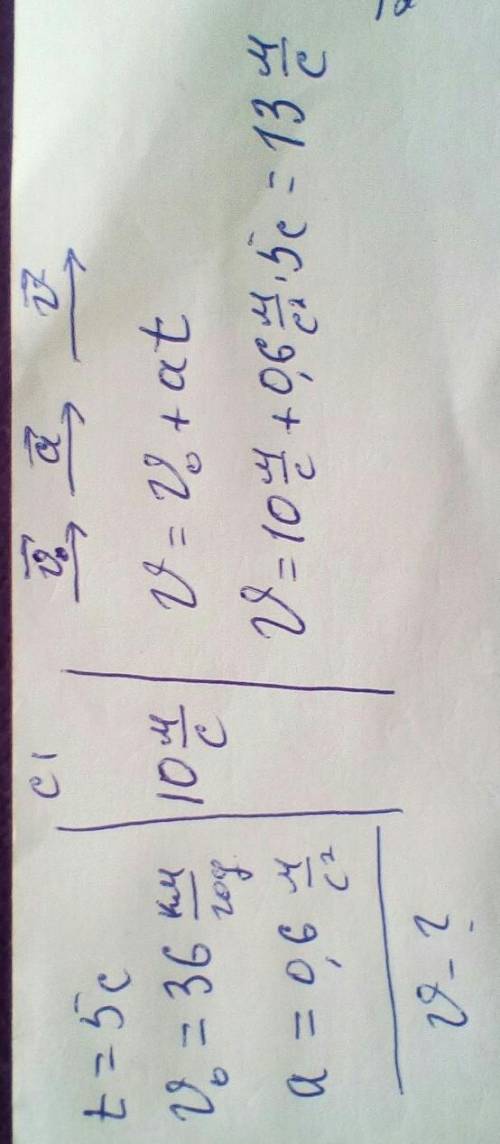 t = 5с
v₀ = 36 км/год
a = 0,6 м/с²
v - ?
СІ
10 м/с
v⃗₀ a⃗ v⃗
v = v₀ + at
v = 10 м/с + 0,6 м/с² · 5с = 13 м/с